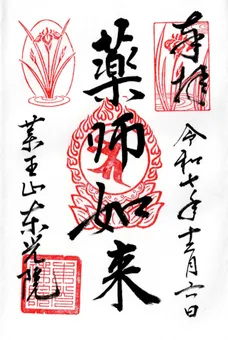 奉拝
令和七年十二月六日
薬師如来
薬王山東光院